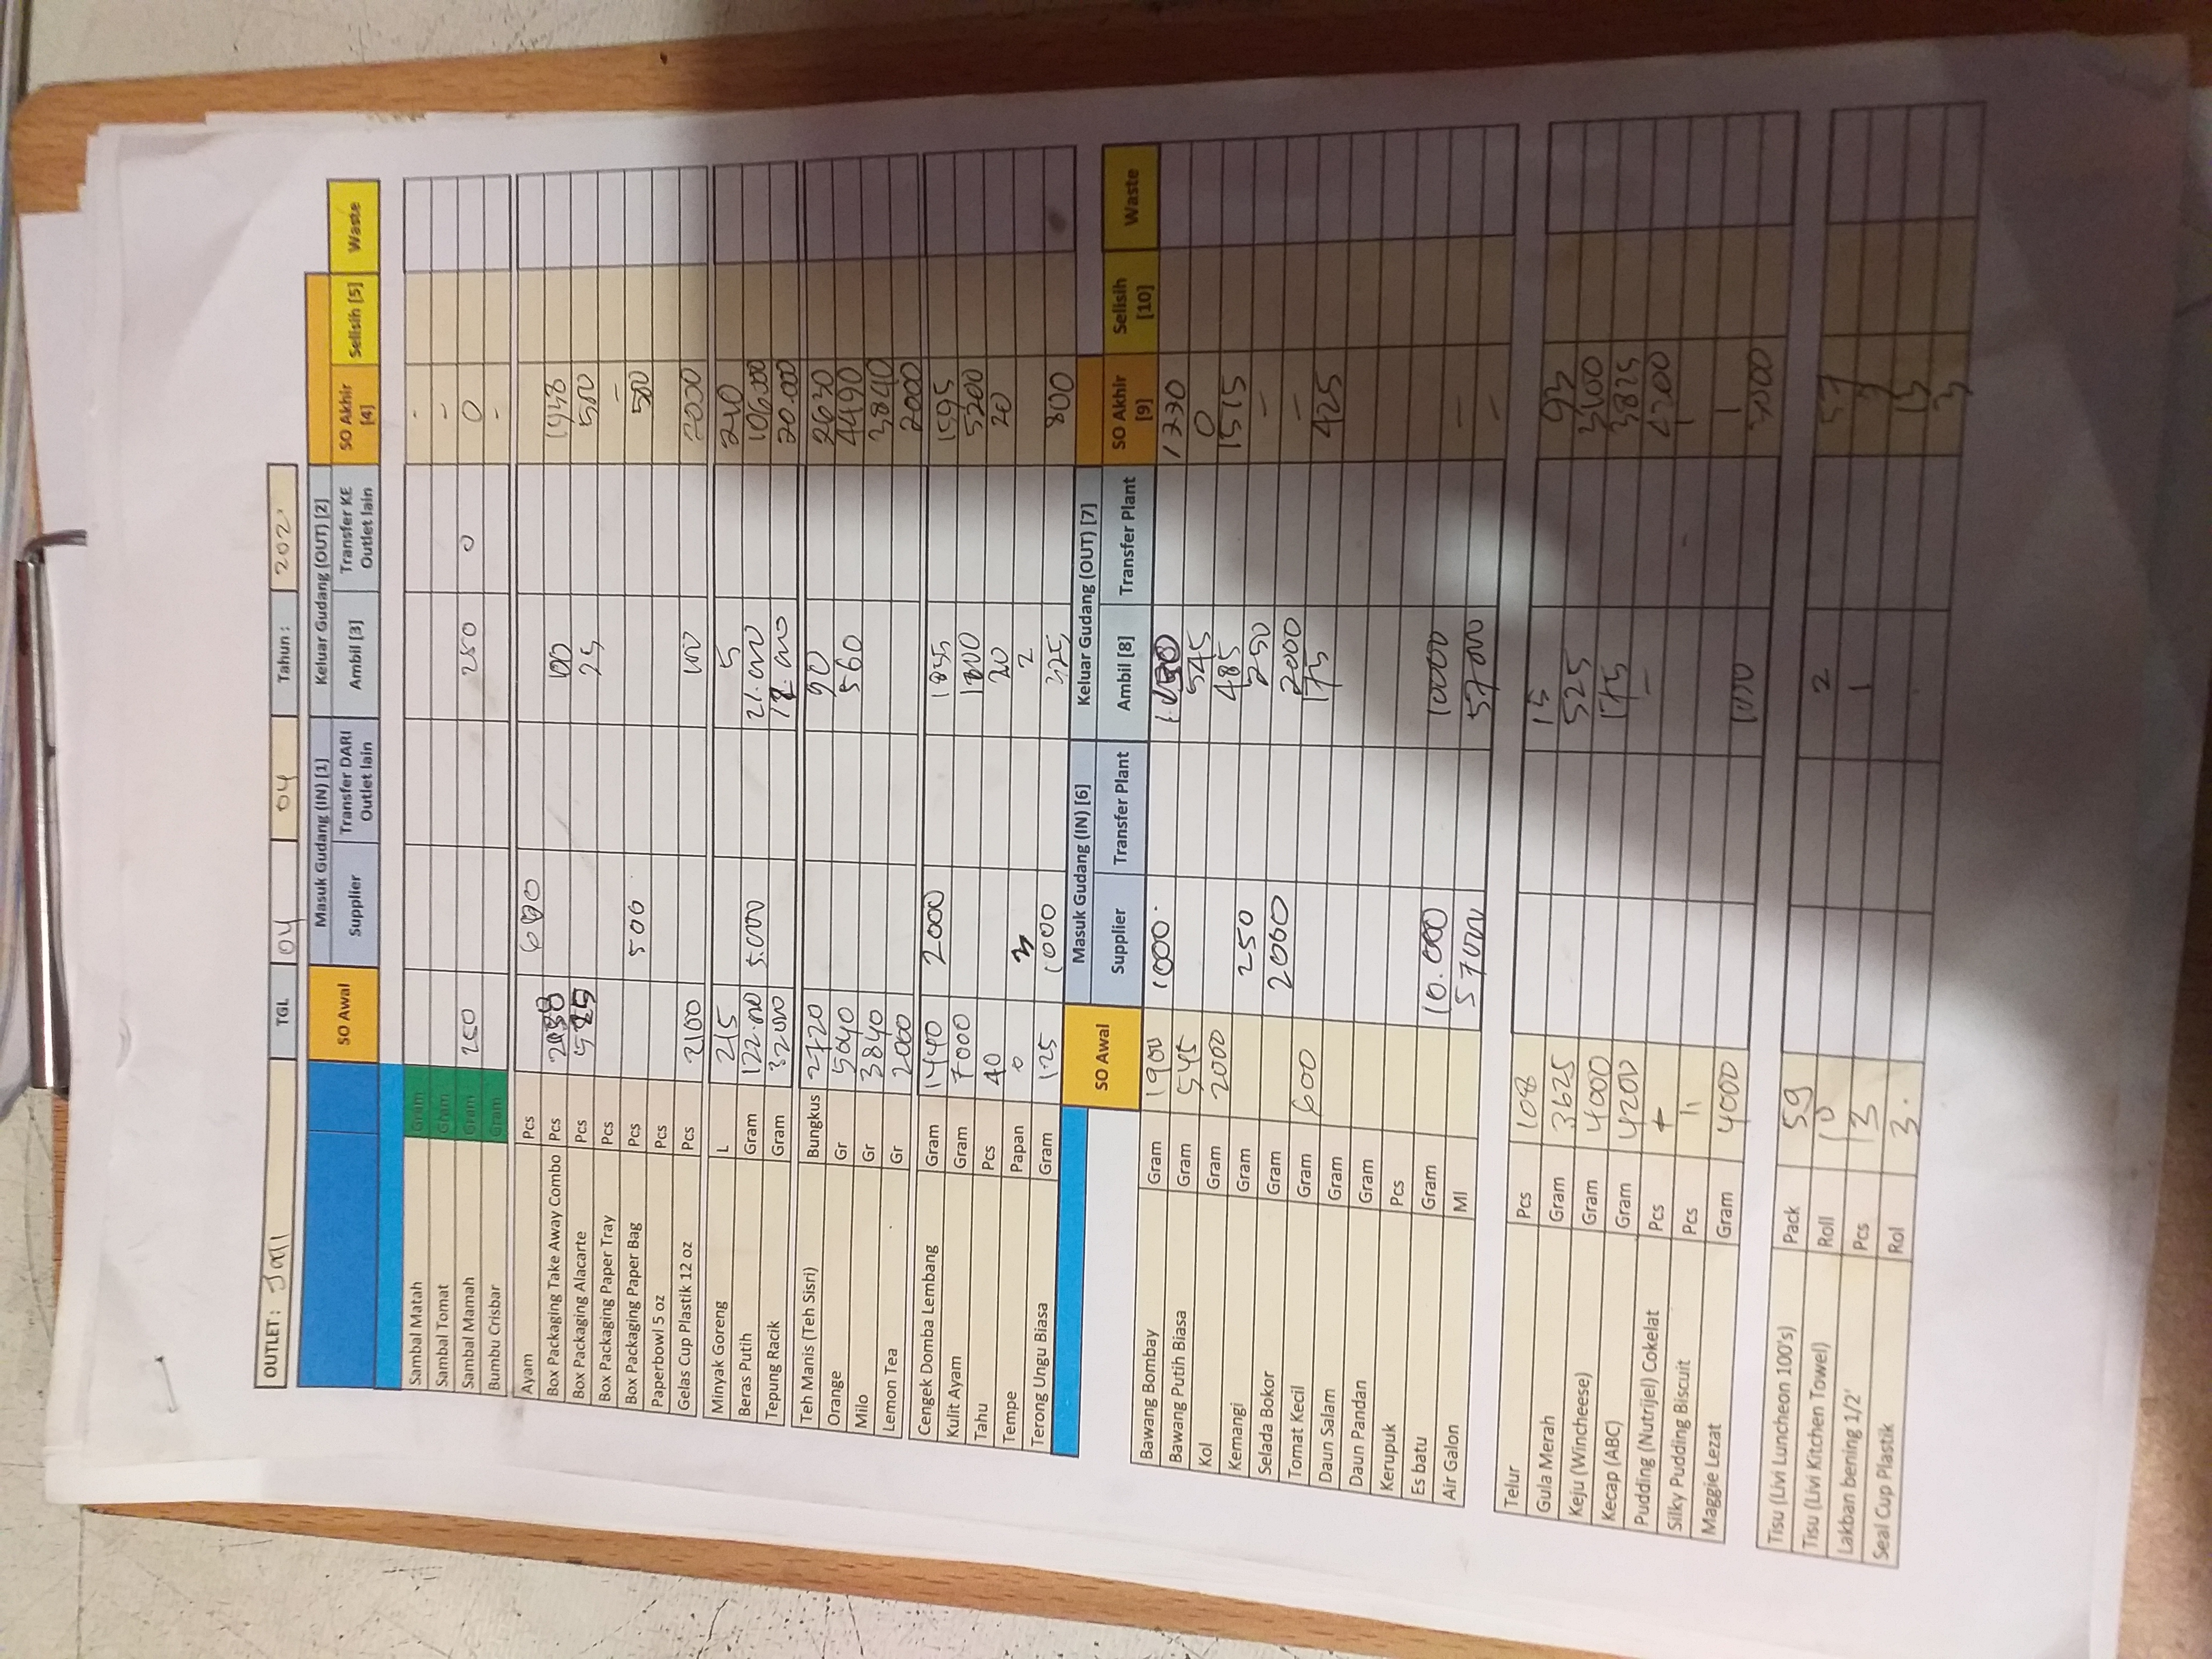 OUTLET : Jall TGL 04 04 Tahun : 202
Masuk Gudang (IN) [1] Keluar Gudang (OUT) [2]
SO Awal Supplier Transfer DARI Outlet lain Ambil [3] Transfer KE Outlet lain SO Akhir [4] Selisih [5] Waste
Sambal Matah Gram -
Sambal Tomat Gram -
Sambal Mamah Gram 250 250 0 0
Bumbu Crisbar Gram -
Ayam Pcs 600
Box Packaging Take Away Combo Pcs 100 1938
Box Packaging Alacarte Pcs 25 500
Box Packaging Paper Tray Pcs -
Box Packaging Paper Bag Pcs 500 500
Paperbowl 5 oz Pcs
Gelas Cup Plastik 12 oz Pcs 2100 100 2000
Minyak Goreng L 215 5 210
Beras Putih Gram 122.000 5.000 21.000 106.000
Tepung Racik Gram 32000 12.000 20.000
Teh Manis (Teh Sisri) Bungkus 2720 90 2630
Orange Gr 5040 560 4490
Milo Gr 3840 3840
Lemon Tea Gr 2000 2000
Cengek Domba Lembang Gram 1440 2000 1855 1595
Kulit Ayam Gram 7000 1800 5200
Tahu Pcs 40 20 20
Tempe Papan 3 2
Terong Ungu Biasa Gram 125 1000 325 800
Masuk Gudang (IN) [6] Keluar Gudang (OUT) [7]
SO Awal Supplier Transfer Plant Ambil [8] Transfer Plant SO Akhir [9] Selisih [10] Waste
Bawang Bombay Gram 1900 1000 1330
Bawang Putih Biasa Gram 545 545 0
Kol Gram 2000 485 1515
Kemangi Gram 250 250 -
Selada Bokor Gram 2000 2000 -
Tomat Kecil Gram 600 175 425
Daun Salam Gram
Daun Pandan Gram
Kerupuk Pcs
Es batu Gram 10.000 10000 -
Air Galon Ml 57000 57000 -
Telur Pcs 108 15 93
Gula Merah Gram 3625 525 3100
Keju (Wincheese) Gram 4000 175 3825
Kecap (ABC) Gram 4200 - 4200
Pudding (Nutrijel) Cokelat Pcs
Silky Pudding Biscuit Pcs
Maggie Lezat Gram 4000 1000 3000
Tisu (Livi Luncheon 100's) Pack 59 2 57
Tisu (Livi Kitchen Towel) Roll 10 1
Lakban bening 1/2' Pcs 13 13
Seal Cup Plastik Rol 3 3